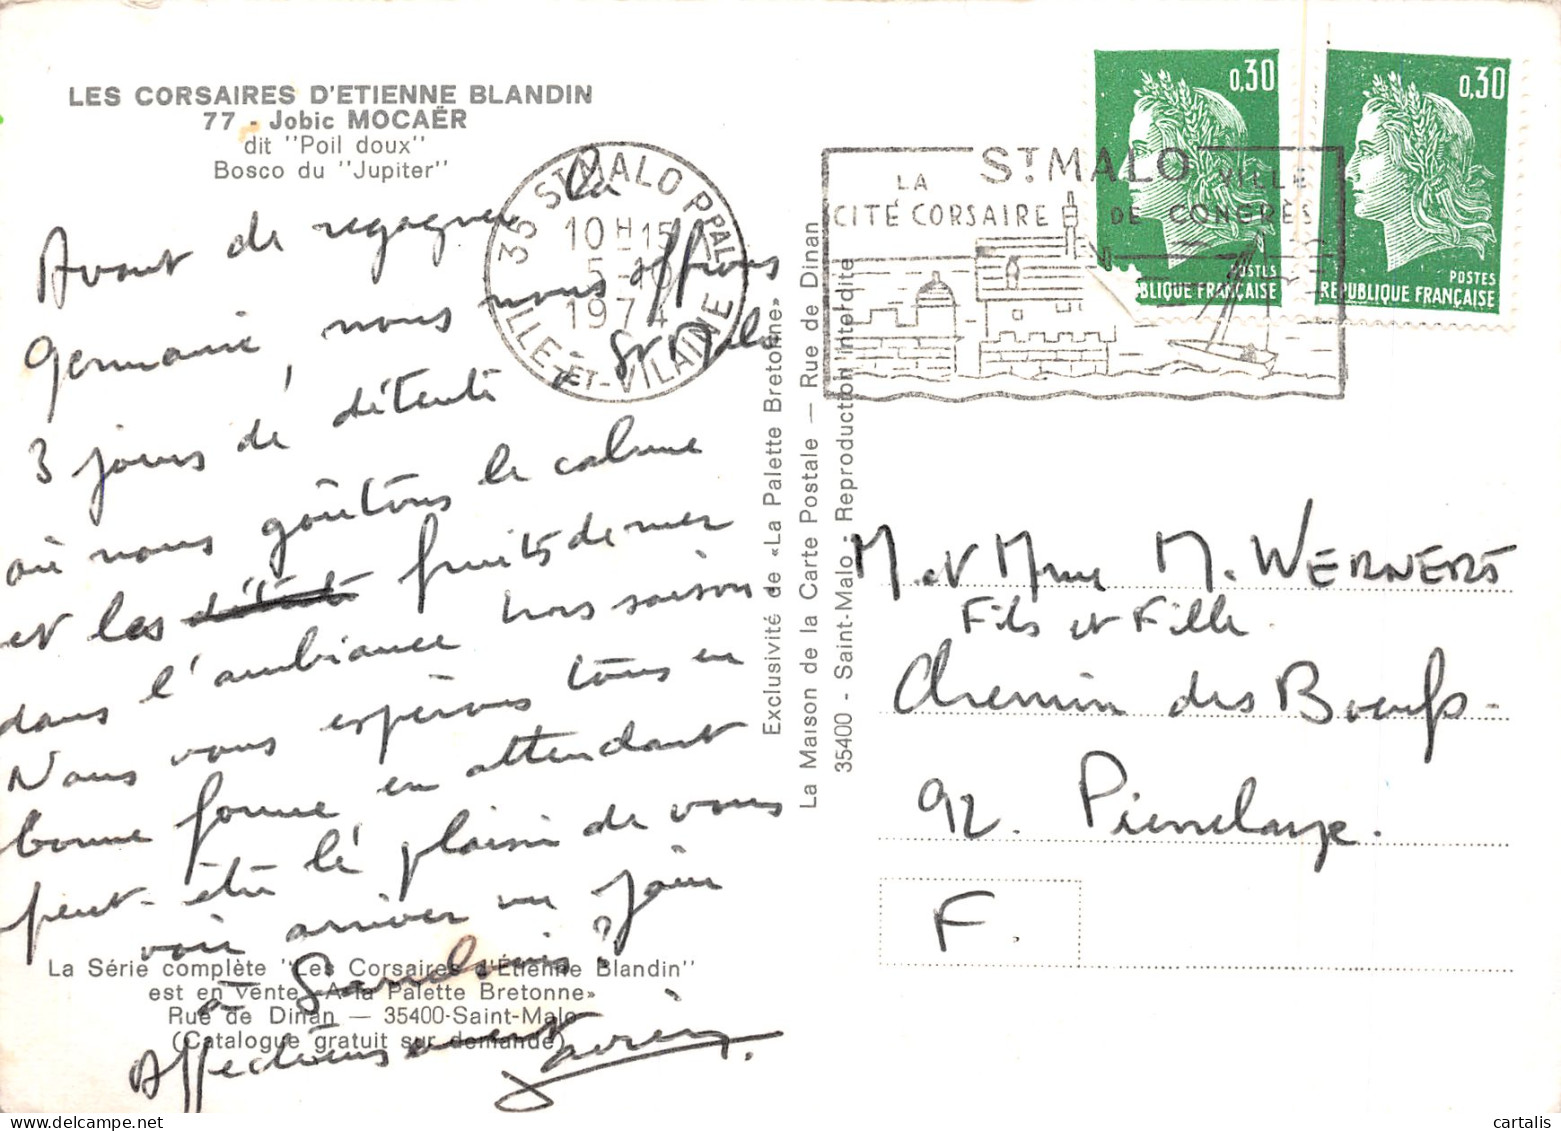 LES CORSAIRES D'ETIENNE BLANDIN
77 - Jobic MOCAËR
dit "Poil doux"
Bosco du "Jupiter"
Avant de regagner la
Germanie, nous nous offrons
3 jours de détente à St Malo
où nous goûtons le calme
et les fruits de mer
dans l'ambiance hors saison
Nous vous espérons tous en
bonne forme en attendant
peut-être le plaisir de vous
voir arriver un jour
à ?
Affectueusement
La Série complète "Les Corsaires d'Étienne Blandin"
est en vente «A la Palette Bretonne»
Rue de Dinan — 35400-Saint-Malo
(Catalogue gratuit sur demande)
Exclusivité de «La Palette Bretonne»
La Maison de la Carte Postale — Rue de Dinan
35400 - Saint-Malo - Reproduction interdite
35 ST MALO PPAL
10 H 15
5 - 10
1974
ILLE-ET-VILAINE
ST MALO
LA
CITÉ CORSAIRE
VILLE
DE CONGRÈS
0,30
POSTES
BLIQUE FRANÇAISE
0,30
POSTES
REPUBLIQUE FRANÇAISE
M. et Mme M. WERNERS
Fils et Fille
Chemin des Boeufs -
92. Pierrelaye.
F.
cartalis